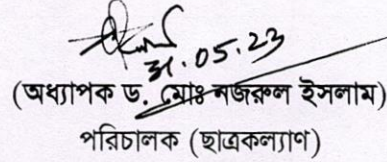 31.05.23
(অধ্যাপক ড. মোঃ নজরুল ইসলাম)
পরিচালক (ছাত্রকল্যাণ)